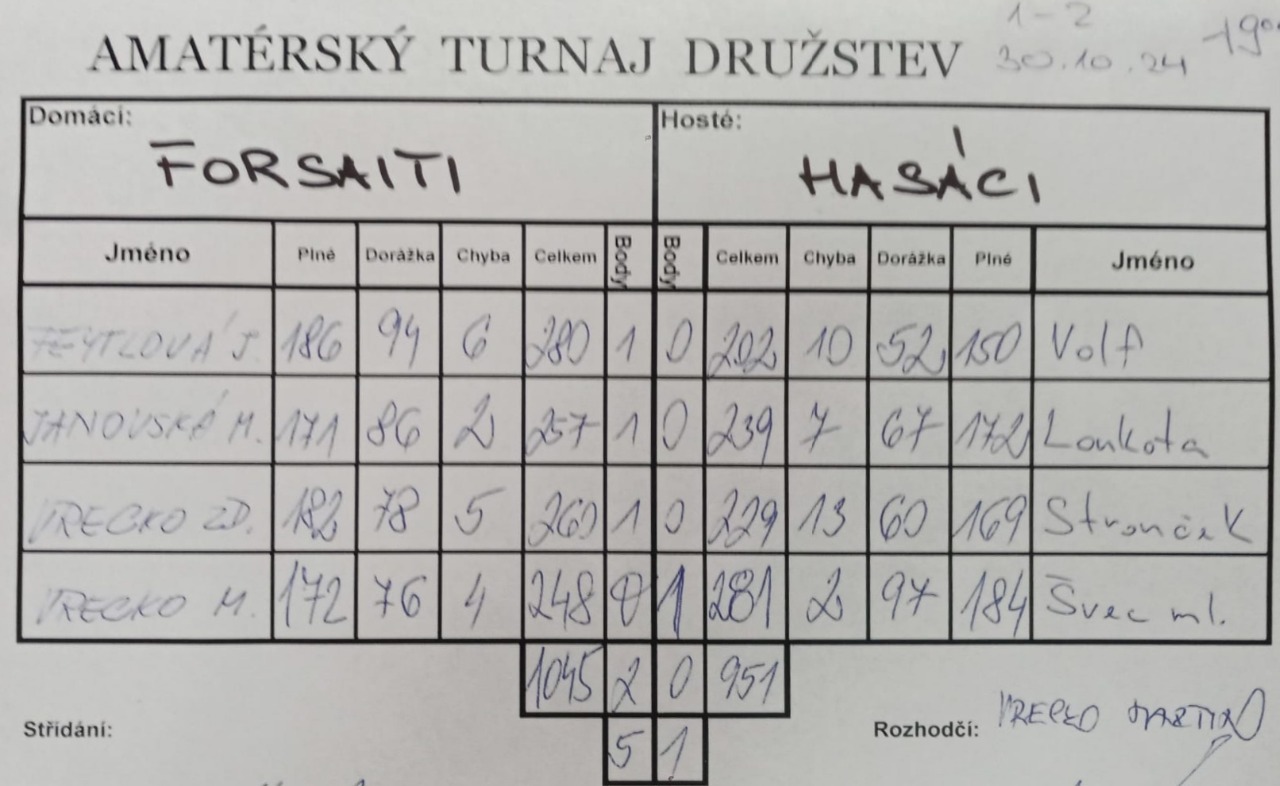 1-2
AMATÉRSKÝ TURNAJ DRUŽSTEV 30.10.24 19⁰⁰
Domácí: Hosté:
FORSAITI HASÁCI
Jméno Plné Dorážka Chyba Celkem Body Body Celkem Chyba Dorážka Plné Jméno
FEYTLOVÁ J. 186 94 6 280 1 0 202 10 52 150 Volf
JANOVSKÁ M. 171 86 2 257 1 0 239 7 67 172 Loukota
VRECKO ZD. 182 78 5 260 1 0 229 13 60 169 Stronček
VRECKO M. 172 76 4 248 0 1 281 2 97 184 Švec ml.
1045 2 0 951
Střídání: Rozhodčí: VRECKO MARTIN
5 1